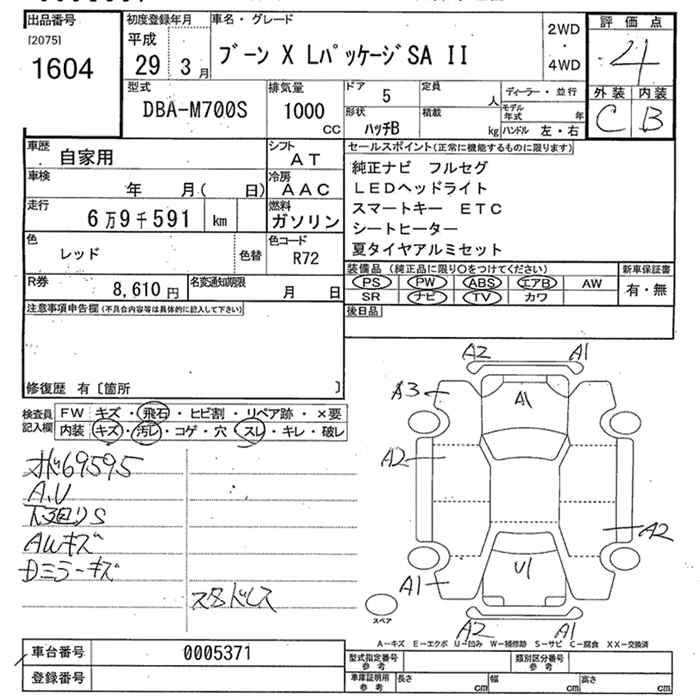 出品番号
[2075]
1604
初度登録年月
平成
29 3月
車名・グレード
ブーン X Lパッケージ SA II
2WD
・
4WD
評価点
4
外装 内装
C B
型式
DBA-M700S
排気量
1000
CC
ドア
5
形状
ハッチB
定員
人
積載
kg
ディーラー・並行
モデル年式 年
ハンドル 左・右
車歴
自家用
シフト
AT
車検
年 月( 日)
冷房
AAC
走行
6万9千591 km
燃料
ガソリン
色
レッド
色替
色コード
R72
R券
8,610 円
名変通知期限
月 日
セールスポイント(正常に機能するものに限ります)
純正ナビ フルセグ
LEDヘッドライト
スマートキー ETC
シートヒーター
夏タイヤアルミセット
装備品(純正品に限り○をつけてください)
PS PW ABS エアB AW
SR ナビ TV カワ
新車保証書
有・無
後日品
注意事項申告欄(不具合内容等は具体的に記入して下さい)
修復歴 有〔箇所 〕
検査員記入欄
FW キズ・飛石・ヒビ割・リペア跡・×要
内装 キズ・汚レ・コゲ・穴・スレ・キレ・破レ
69595
A.U
下廻りS
AWキズ
Dミラーキズ
スタドレス
A2 A1
A3 A1
A2
A2
A1 U1
A2 A1
スペア
A-キズ E-エクボ U-凹み W-補修跡 S-サビ C-腐食 XX-交換済
車台番号 0005371
登録番号
型式指定番号 参考
類別区分番号 参考
車庫証明用 参考
長さ cm 幅 cm 高さ cm